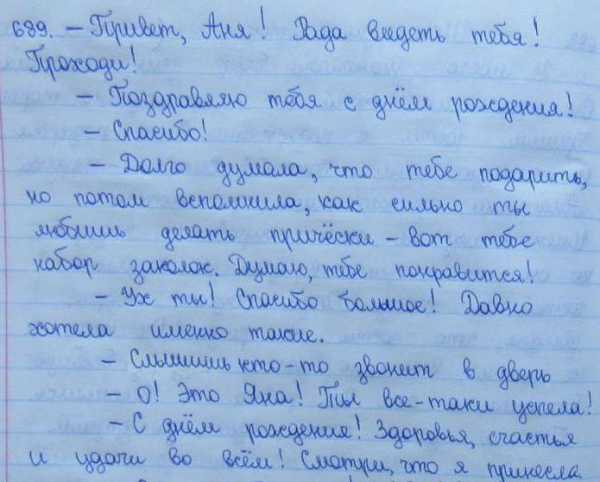 689. – Привет, Аня! Рада видеть тебя!
Проходи!
– Поздравляю тебя с днём рождения!
– Спасибо!
– Долго думала, что тебе подарить,
но потом вспомнила, как сильно ты
любишь делать причёски – вот тебе
набор заколок. Думаю, тебе понравится!
– Ух ты! Спасибо большое! Давно
хотела именно такие.
– Слышишь кто-то звонит в дверь
– О! Это Яна! Ты все-таки успела!
– С днём рождения! Здоровья, счастья
и удачи во всём! Смотри, что я принесла